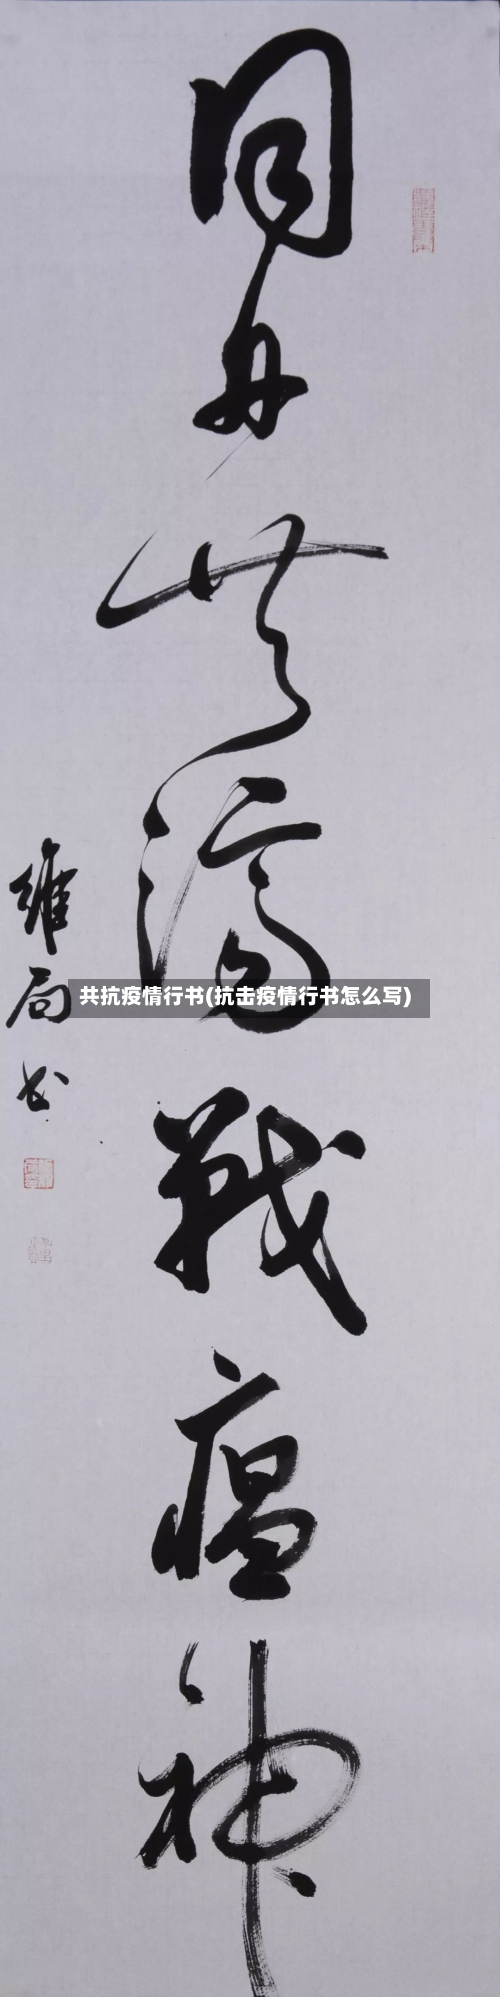 同舟共濟戰瘟神
維局书
共抗疫情行书(抗击疫情行书怎么写)